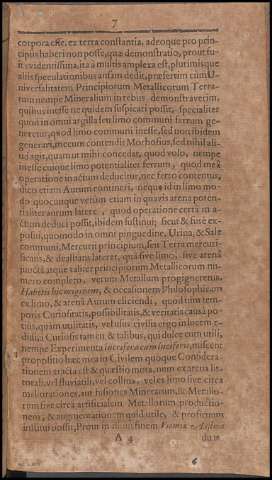 7
corpora esse, ex terra constantia, adeoque pro prin-
cipiis haberi non posse, quæ demonstratio, prout fu-
it evidentissima, ita à multis amplexa est, plurimisque
aliis speculationibus ansam dedit, præsertim cùm U-
niversalitatem Principiorum Metallicorum Terra-
rum nempe Mineralium in rebus demonstraverim,
quibus inesse ne quidem suspicati
quòd in omni argilla seu limo communi ferrum ge-
neretur, quod limo communi inesse, sed non ibidem
generari, mecum contendit Morhofius, sed nihil ali-
ud agit, quam ut mihi concedat, quod volo, nempe
inesse cuique limo potentialiter ferrum, quod mea
operatione in actum deducitur, nec ferro contentus,
dico etiam Aurum contineri, neque id in limo mo-
do quocunque verum etiam in quavis arena poten-
tialiter aurum latere, quod operatione certa in a-
ctum deduci possit, ibidem sustinui; sicut & fusè ex-
posui, quomodo in omni pinguedine, Urina, & Sale
communi, Mercurii principium, seu Terra mercuri-
ficans, & dealbans lateret, quâ sive limo, sive arenæ
junctâ atque taliter principiorum Metallicorum nu-
mero completo, verum Metallum propigneretur.
Habebis hic regnum, & occasionem Philosophicam
ex limo, & arenâ Aurum eliciendi, quod tum tem-
poris Curiositatis, possibilitatis, & veritatis causâ po-
tiùs, quàm utilitatis, vel usus civilis ergo in lucem e-
didi: à Curiosis tamen & talibus, qui dulce cum utili,
nempe Experimenta lucifera cum lucriferis, miscent
proposito hæc mea in Civilem quoque Considera-
tionem tracta est & quæstio mota, num ex arena lit-
torali, vel fluviatili, vel collina, vel ex limo sive circa
meliorationes, aut fusiones Minerarum, & Metallo-
rum sive circa artificialem Metallorum productio-
nem, & augmentationem quid utile, & proficuum
institui possit. Prout in
A 4
6